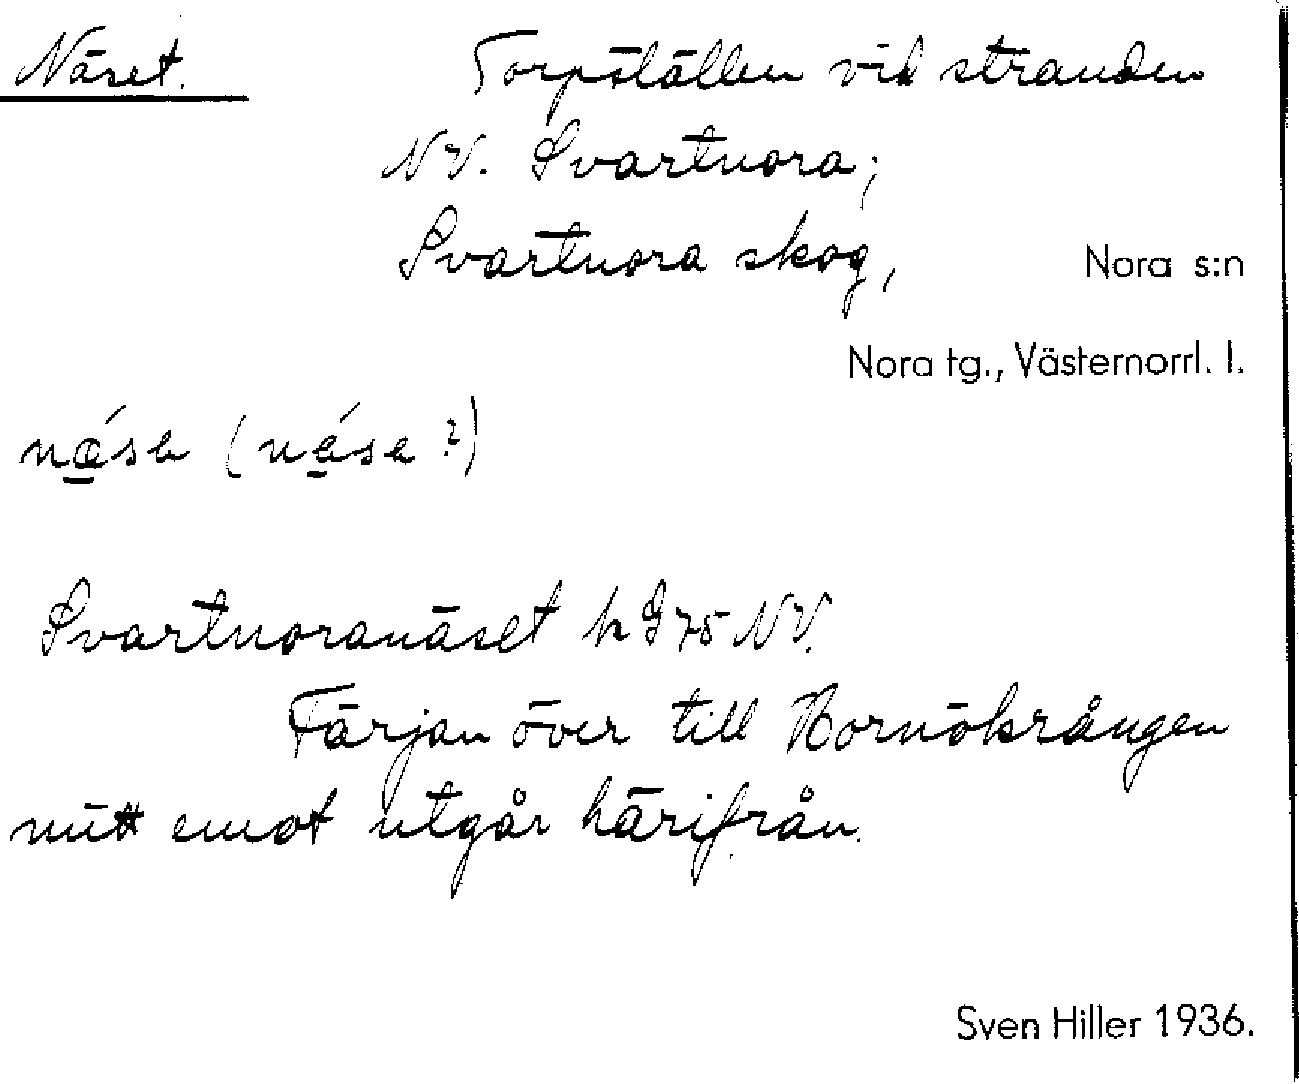 Näset. Torpställen vid stranden
NV. Svartnora;
Svartnora skog, Nora s:n
Nora tg., Västernorrl. l.
nǽsa (nǽsa ?)
Svartnoranäset NV.
Färjan över till Hornökrången
mitt emot utgår härifrån.
Sven Hiller 1936.